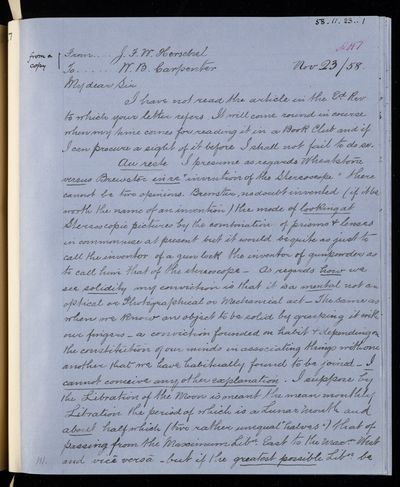 58.11.23.1
7
from a copy
From.... J. F. W. Herschel
To...... W. B. Carpenter
Nov 23/58
My dear Sir
I have not read the article in the Ed. Rev
to which your letter refers It will come round in course
when my time comes for reading it in a Book Club and if
I can procure a sight of it before I shall not fail to do so.
Au reste I presume as regards Wheatstone
versus Brewster in re "invention of the Stereoscope" there
cannot be two opinions. Brewster, no doubt invented (if it be
worth the name of an invention) the mode of looking at
Stereoscopic pictures by the combination of prisms & lenses
in common use at present but it would be quite as just to
call the inventor of a gun lock the inventor of gunpowder as
to call him that of the stereoscope – As regards how we
see solidity my conviction is that it is a mental not an
optical or Photographical or Mechanical act – The same as
when we know an object to be solid by grasping it with
our fingers – a conviction founded on habit & depending on
the constitution of our minds in associating things with one
another that we have habitually found to be joined – I
cannot conceive any other explanation. I suppose by
the Libration of the Moon is meant the mean monthly
Libration the period of which is a Lunar month and
about half which (two rather unequal "halves") that of
passing from the Maximum Libn. East to the max. West
and vice versâ – but if the greatest possible Libn. be